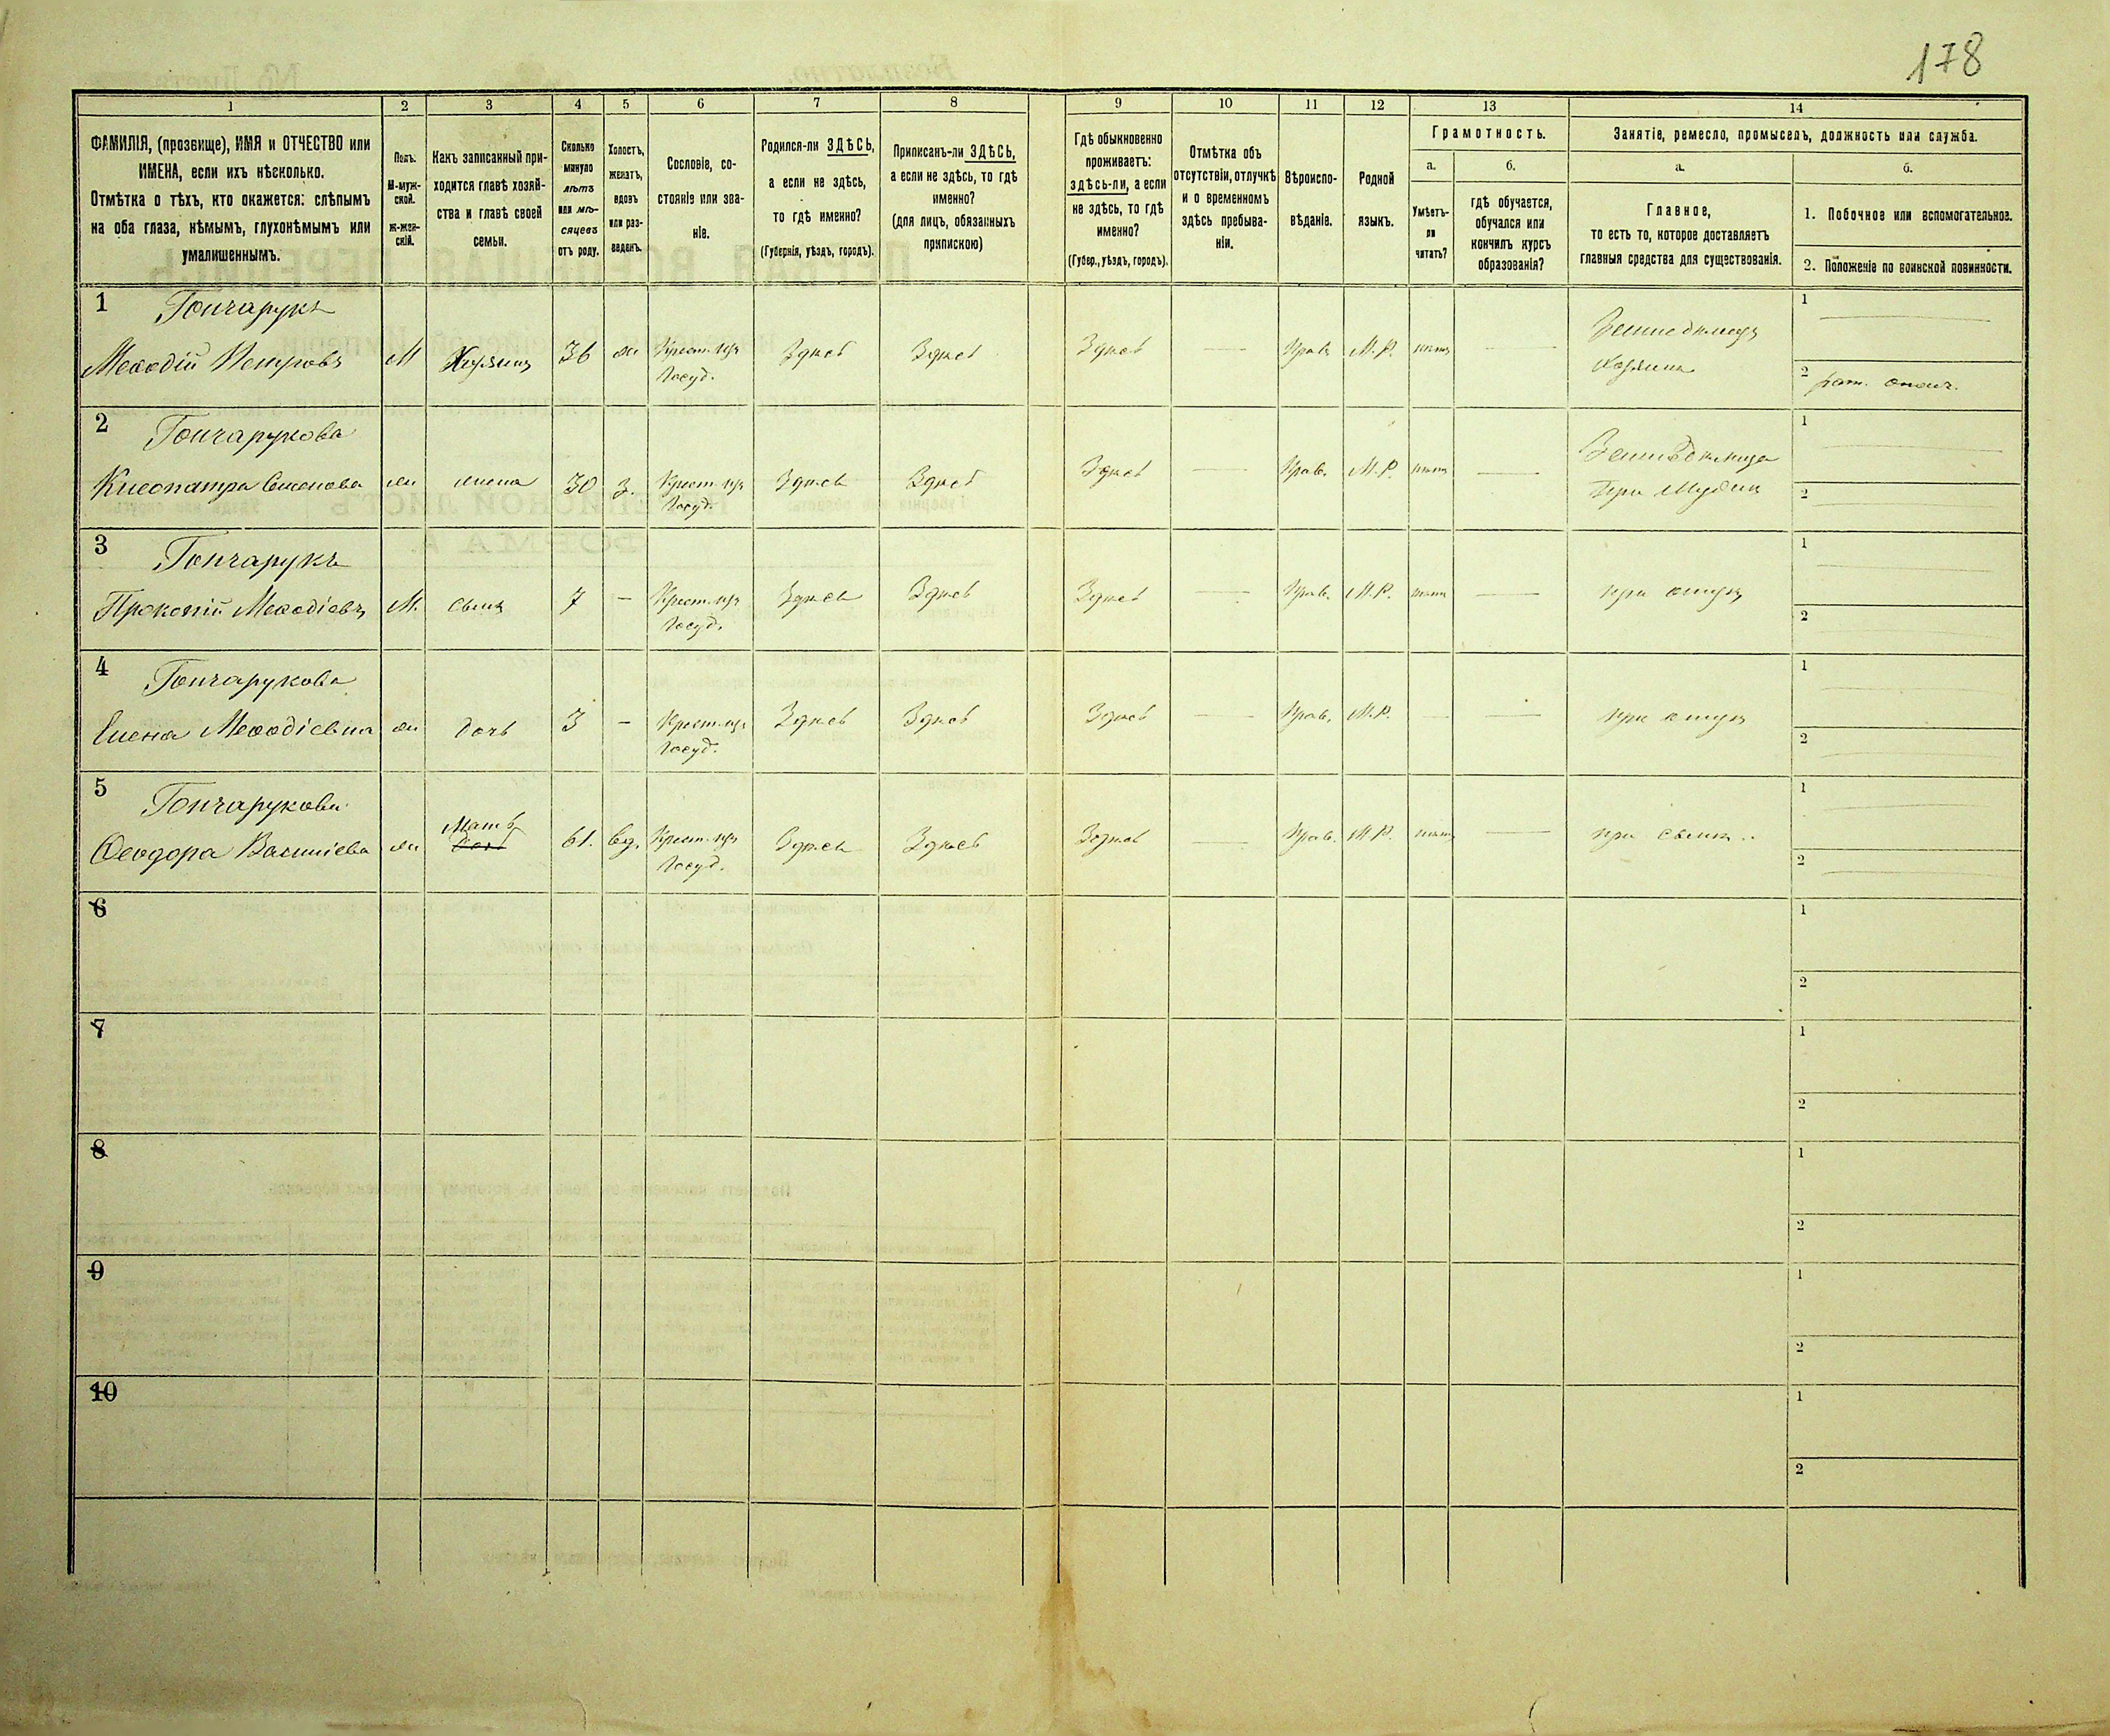 178
1 2 3 4 5 6 7 8 9 10 11 12 13 14
ФАМИЛІЯ, (прозвище), ИМЯ и ОТЧЕСТВО или
ИМЕНА, если ихъ нѣсколько.
Отмѣтка о тѣхъ, кто окажется: слѣпымъ
на оба глаза, нѣмымъ, глухонѣмымъ или
умалишеннымъ.
Полъ.
М-муж-
ской.
Ж-жен-
скій.
Какъ записанный при-
ходится главѣ хозяй-
ства и главѣ своей
семьи.
Сколько
минуло
лѣтъ
или мѣ-
сяцевъ
отъ роду.
Холостъ,
женатъ,
вдовъ
или раз-
веденъ.
Сословіе, со-
стояніе или зва-
ніе.
Родился-ли ЗДѢСЬ,
а если не здѣсь,
то гдѣ именно?
(Губернія, уѣздъ, городъ).
Приписанъ-ли ЗДѢСЬ,
а если не здѣсь, то гдѣ
именно?
(для лицъ, обязанныхъ
припискою)
Гдѣ обыкновенно
проживаетъ:
здѣсь-ли, а если
не здѣсь, то гдѣ
именно?
(Губер., уѣздъ, городъ).
Отмѣтка объ
отсутствіи, отлучкѣ
и о временномъ
здѣсь пребыва-
ніи.
Вѣроиспо-
вѣданіе.
Родной
языкъ.
Грамотность.
а.
Умѣетъ-
ли
читать?
б.
гдѣ обучается,
обучался или
кончилъ курсъ
образованія?
Занятіе, ремесло, промыселъ, должность или служба.
а.
Главное,
то есть то, которое доставляетъ
главныя средства для существованія.
б.
1. Побочное или вспомогательное.
2. Положеніе по воинской повинности.
1 Гончарукъ
Меѳодій Петровъ М Хозяинъ 36 ж. Крест. изъ Здѣсь Здѣсь Здѣсь — Прав. М.Р. нѣтъ — Земледѣлецъ 1 —
Госуд. хозяинъ 2 рат. ополч.
2 Гончарукова
Клеопатра Семенова ж жена 30 з. Крест. изъ Здѣсь Здѣсь Здѣсь — Прав. М.Р. нѣтъ — Земледѣлица 1 —
Госуд. При Мужѣ 2 —
3 Гончарукъ
Прокопій Меѳодіевъ М. сынъ 7 — Крест. изъ Здѣсь Здѣсь Здѣсь — Прав. М.Р. нѣтъ — при отцѣ 1 —
Госуд. 2
4 Гончарукова
Елена Меѳодіевна ж дочь 3 — Крест. изъ Здѣсь Здѣсь Здѣсь — Прав. М.Р. — — при отцѣ 1 —
Госуд. 2 —
5 Гончарукова
Ѳеодора Васильева ж Мать 61. вд. Крест. изъ Здѣсь Здѣсь Здѣсь — Прав. М.Р. нѣтъ — при сынѣ 1 —
дочь Госуд. 2 —
6 1
2
7 1
2
8 1
2
9 1
2
10 1
2